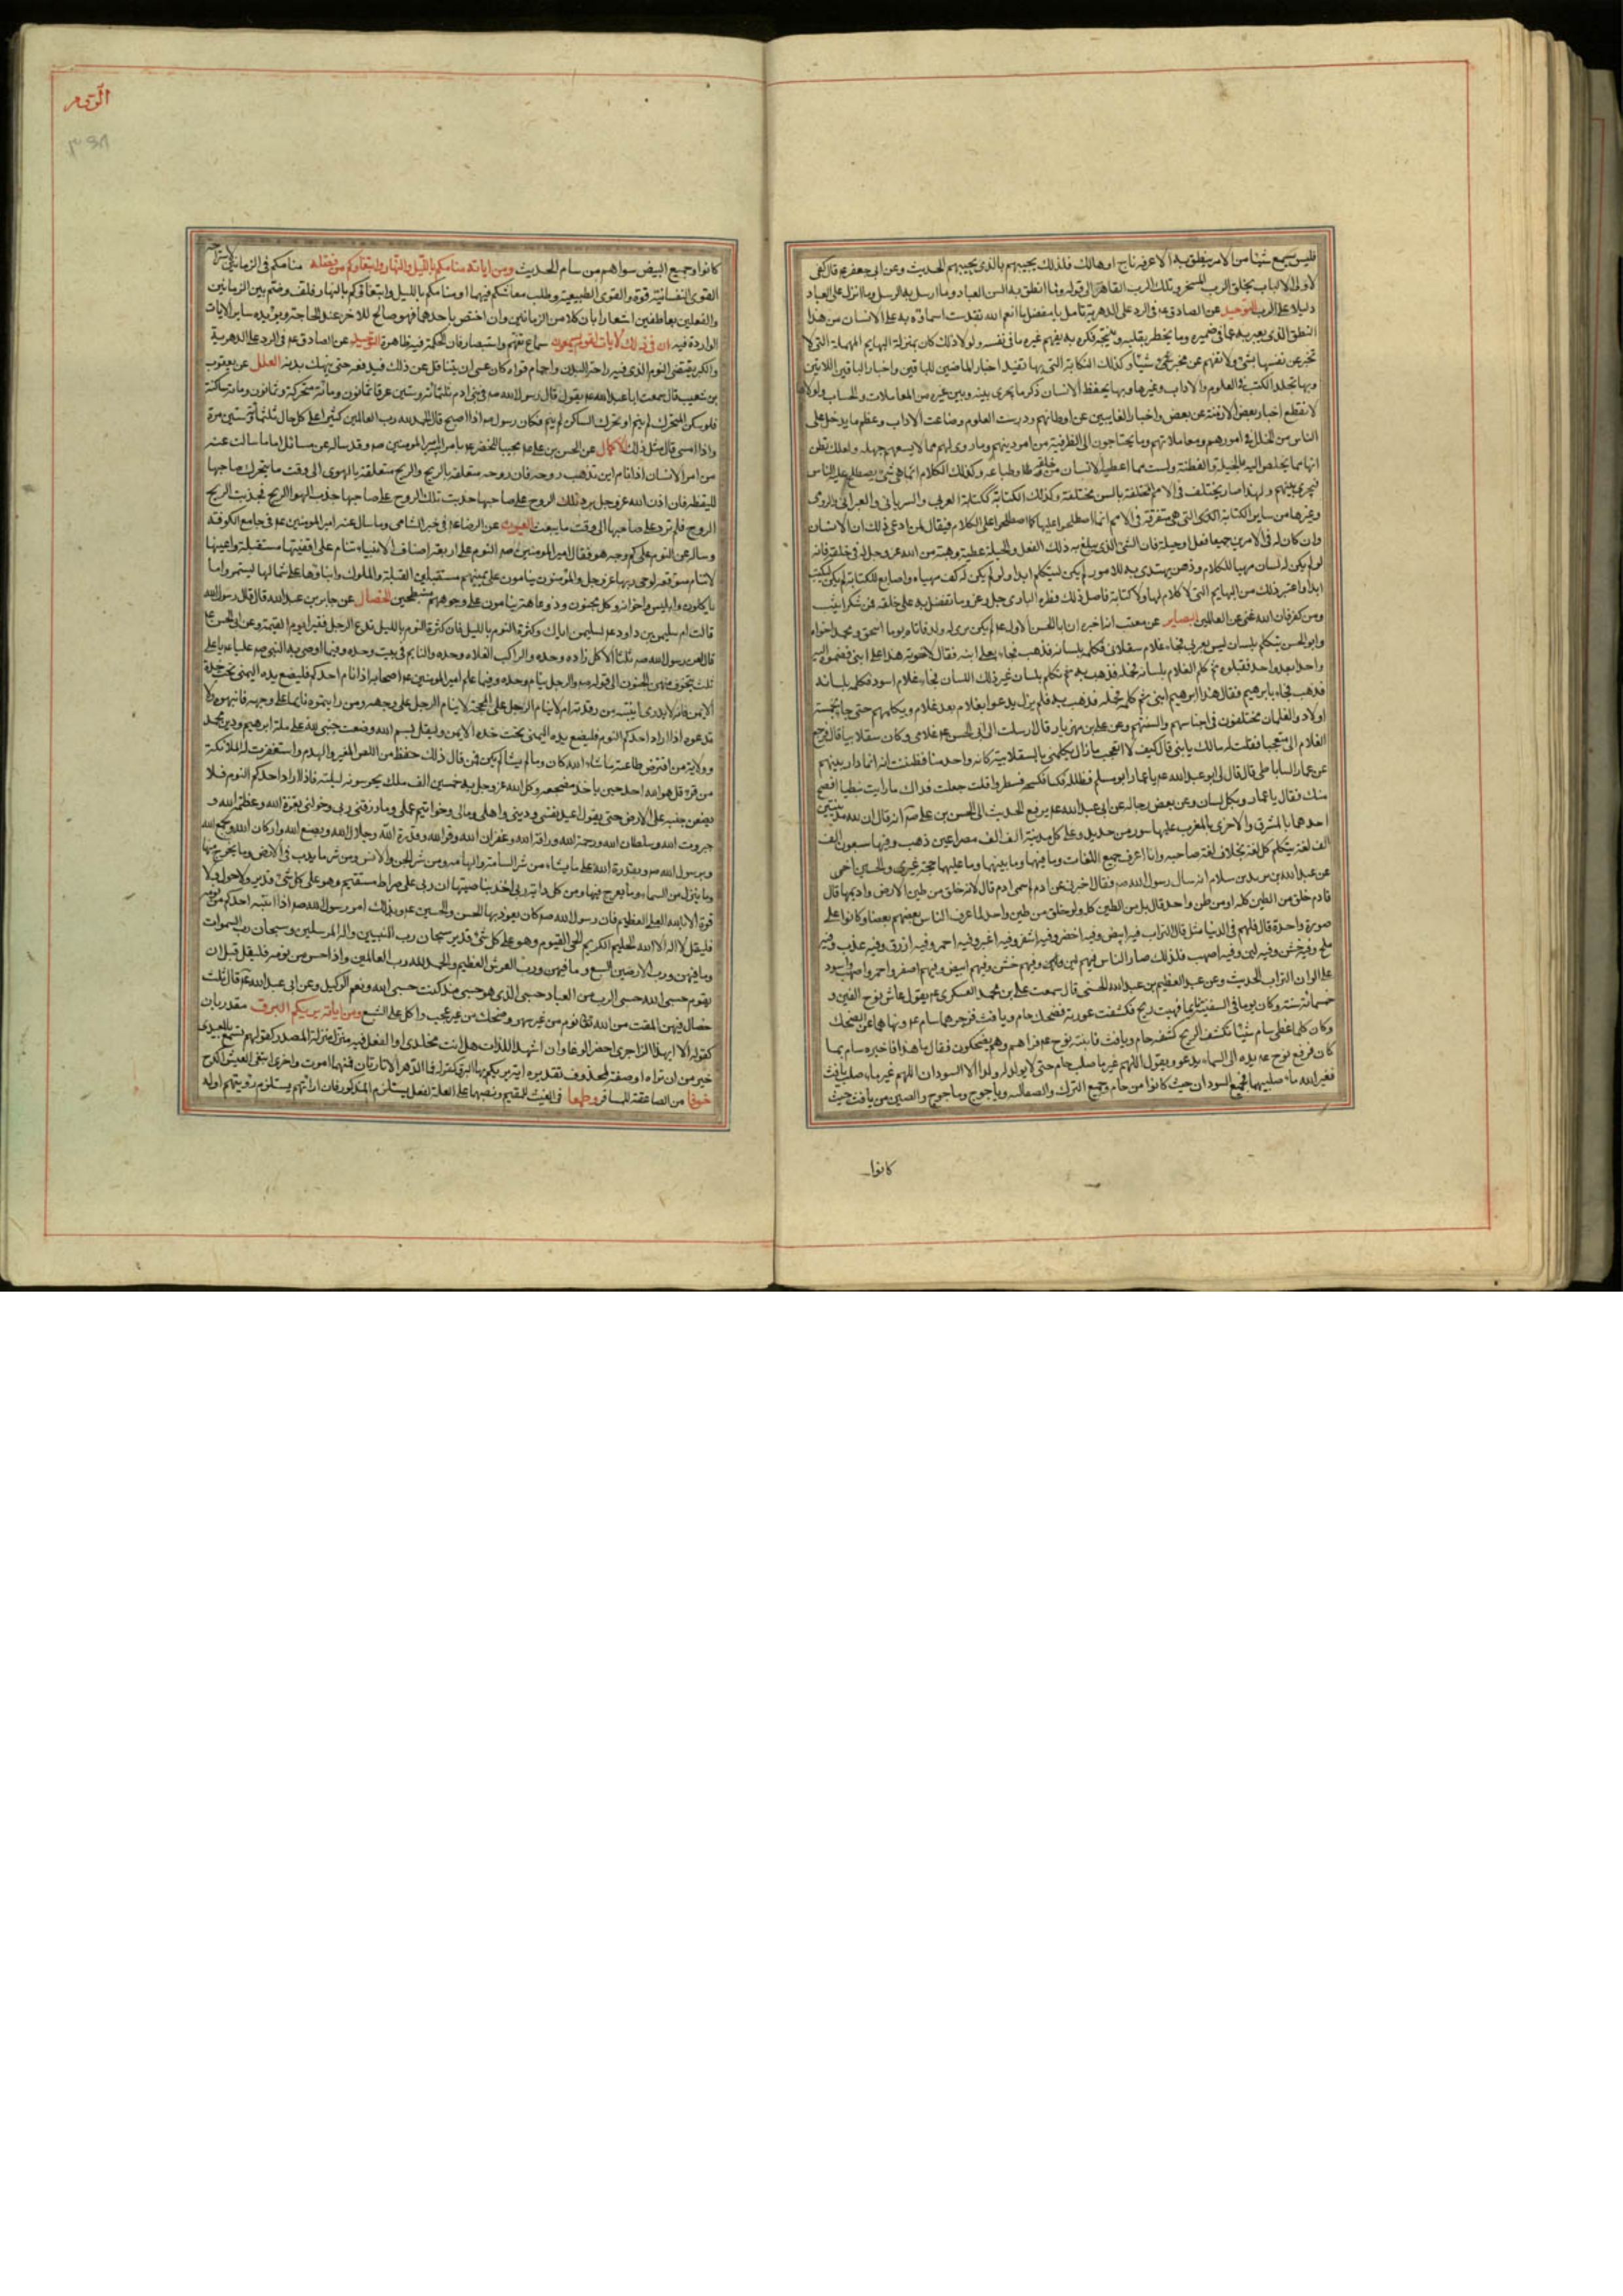 فليس يسمع شيئا من الامر ينطق به الا عرفه ناج او هالك فلذلك يجيبهم بالذي يجيبهم الحديث وعن ابي جعفر ع قال كفى
لاولى الالباب بخلق الرب المسخر وملك الرب القاهر الى قوله وما انطق به السن العباد وما ارسل به الرسل وما انزل على العباد
دليلا على الرب التوحيد عن الصادق ع في الرد على الدهرية تامل يا مفضل ما انعم الله تقدست اسماؤه به على الانسان من هذا
النطق الذي يعبر به عما في ضميره وما يخطر بقلبه وينتجه فكره به يفهم غيره ما في نفسه ولولا ذلك كان بمنزلة البهايم المهملة التي لا
تخبر عن نفسها بشئ ولا تفهم عن مخبر شيئا وكذلك الكتابة التي بها تقيد اخبار الماضين للباقين واخبار الباقين للاتين
وبها تخلد الكتب في العلوم والاداب وغيرها وبها يحفظ الانسان ذكر ما يجري بينه وبين غيره من المعاملات والحساب ولولاها
لانقطع اخبار بعض الازمنة عن بعض واخبار الغايبين عن اوطانهم ودرست العلوم وضاعت الاداب وعظم ما يدخل على
الناس من الخلل في امورهم ومعاملاتهم وما يحتاجون الى النظر فيه من امر دينهم وما روى لهم مما لا يسعهم جهله ولعلك تظن
انها مما يخلص اليه بالحيلة والفطنة وليست مما اعطيه الانسان من خلقه وطباعه وكذلك الكلام انما هو شئ يصطلح عليه الناس
فيجري بينهم ولهذا صار يختلف في الامم المختلفة بالسن مختلفة وكذلك الكتابة ككتابة العربي والسرياني والعبراني والرومي
وغيرها من ساير الكتابة التي هي متفرقة في الامم انما اصطلحوا عليها كما اصطلحوا على الكلام فيقال لمن ادعى ذلك ان الانسان
وان كان له في الامرين جميعا فعل او حيلة فان الشئ الذي يبلغ به ذلك الفعل والحيلة عطية وهبة من الله عز وجل في خلقه فانه
لو لم يكن له لسان مهيا للكلام وذهن يهتدي به للامور لم يكن ليتكلم ابدا ولو لم يكن له كف مهياة واصابع للكتابة لم يكن ليكتب
ابدا واعتبر ذلك من البهايم التي لا كلام لها ولا كتابة فاصل ذلك فطرة الباري جل وعز وما تفضل به على خلقه فمن شكر اثيب
ومن كفر فان الله غني عن العالمين البصاير عن معتب انه اخبره ان ابا الحسن الاول ع لم يكن يرى له ولد فاتاه يوما اسحق ومحمد اخواه
وابو الحسن يتكلم بلسان ليس بعربي فجاء غلام سقلابي فكلمه بلسانه فذهب فجاء بعلي ابنه فقال لاخوته هذا علي ابني فضموه اليه
واحدا بعد واحد فقبلوه ثم كلم الغلام بلسانه فحمله فذهب به ثم تكلم بلسان غير ذلك اللسان فجاء غلام اسود فكلمه بلسانه
فذهب فجاء بابرهيم فقال هذا ابرهيم ابني ثم كلمه فحمله فذهب به فلم يزل يدعوا بغلام بعد غلام ويكلمهم حتى جاء خمسة
اولاد والغلمان مختلفون في اجناسهم والسنتهم وعن علي بن مهزيار قال ارسلت الى ابي الحسن ع غلامي وكان سقلابيا قال فرجع
الغلام الى متعجبا فقلت له مالك يا بني قال كيف لا اتعجب ما زال يكلمني بالسقلابية كانه واحد منا فظننت انه انما دار بينهم
عن عمار الساباطي قال قال لي ابو عبد الله ع يا عمار ابو مسلم فظلله فكسا فكسحه فسطورا قلت جعلت فداك ما رايت نبطيا افصح
منك فقال يا عمار وبكل لسان وعن بعض رجاله عن ابي عبد الله ع يرفع الحديث الى الحسن بن علي ص انه قال ان لله مدينتين
احدهما بالمشرق والاخرى بالمغرب عليهما سور من حديد وعلى كل مدينة الف الف مصراعين ذهب وفيها سبعون الف
الف لغة يتكلم كل لغة بخلاف لغة صاحبه وانا اعرف جميع اللغات وما فيهما وما بينهما وما عليهما حجة غيري والحسين اخي
عن عبد الله بن يزيد بن سلام انه سال رسول الله ص فقال اخبرني عن ادم لم سمي ادم قال لانه خلق من طين الارض واديمها قال
فادم خلق من الطين كله او من طين واحد قال بل من الطين كله ولو خلق من طين واحد لما عرف الناس بعضهم بعضا وكانوا على
صورة واحدة قال فلهم في الدنيا مثل قال التراب فيه ابيض وفيه اخضر وفيه اشقر وفيه اغبر وفيه احمر وفيه ازرق وفيه عذب وفيه
ملح وفيه خشن وفيه لين وفيه اصهب فلذلك صار الناس فيهم لين وفيهم خشن وفيهم ابيض وفيهم اصفر واحمر واصهب واسود
على الوان التراب الحديث وعن عبد العظيم بن عبد الله الحسني قال سمعت علي بن محمد العسكري ع يقول عاش نوح الفين و
خمسمائة سنة وكان يوما في السفينة نايما فهبت ريح فكشفت عورته فضحك حام ويافث فزجرهما سام ع ونهاهما عن الضحك
وكان كلما غطى سام شيئا تكشفه الريح كشفه حام ويافث فانتبه نوح ع فراهم وهم يضحكون فقال ما هذا فاخبره سام بما
كان فرفع نوح ع يده الى السماء يدعو ويقول اللهم غير ما صلب حام حتى لا يولد له ولد الا السودان اللهم غير ماء صلب يافث
فغير الله ماء صلبيهما فجميع السودان حيث كانوا من حام وجميع الترك والصقالبه وياجوج وماجوج والصين من يافث حيث
كانوا
الروم
٣٩٨
كانوا وجميع البيض سواهم من سام الحديث ومن اياته منامكم بالليل والنهار وابتغاؤكم من فضله منامكم في الزمانين لاستراحة
القوى النفسانية وقوة القوى الطبيعية وطلب معاشكم فيهما او منامكم بالليل وابتغاؤكم بالنهار فلف وضم بين الزمانين
والفعلين بعاطفين اشعارا بان كلا من الزمانين وان اختص باحدهما فهو صالح للاخر عند الحاجة ويؤيده ساير الايات
الواردة فيه ان في ذلك لايات لقوم يسمعون سماع تفهم واستبصار فان الحكمة فيه ظاهرة التوحيد عن الصادق ع في الرد على الدهرية
والكرى يقتضي النوم الذي فيه راحة البدن واجمام قواه كان عسى ان يتثاقل عن ذلك فيدفعه حتى ينهك بدنه العلل عن يعقوب
بن شعيب قال سمعت ابا عبد الله ع يقول قال رسول الله ص في بني ادم ثلثمائة وستين عرقا ثمانون ومائة متحركة وثمانون ومائة ساكنة
فلو سكن المتحرك لم ينم او تحرك الساكن لم ينم فكان رسول الله ص اذا اصبح قال الحمد لله رب العالمين كثيرا على كل حال ثلثمائة وستين مرة
واذا امسى قال مثل ذلك الاكمال عن الحسن بن علي ع مجيبا للخضر ع بامر امير المومنين ص وقد ساله عن مسائل اما ما سالت عنه
من امر الانسان اذا نام اين تذهب روحه فان روحه متعلقة بالريح والريح متعلقة بالهوى الى وقت ما يتحرك صاحبها
لليقظة فان اذن الله عز وجل برد تلك الروح على صاحبها جذبت تلك الروح على صاحبها جذب الهوا الريح فجذبت الريح
الروح فلم ترد على صاحبها الى وقت ما يبعث العيون عن الرضا ع في خبر الشامي وما سال عنه امير المومنين ع في جامع الكوفة
وساله عن النوم على كم وجه هو فقال امير المومنين ص النوم على اربعة اصناف الانبياء تنام على اقفيتها مستقبلة واعينها
لا تنام متوقعة لوحي ربها عز وجل والمؤمنون ينامون على يمينهم مستقبلين القبلة والملوك وابناؤها على شمالها ليستمروا ما
ياكلون وابليس واخوانه وكل مجنون وذو عاهة ينامون على وجوههم منبطحين الخصال عن جابر بن عبد الله قال قال رسول الله
قالت ام سليمن بن داود ع لسليمن اياك وكثرة النوم بالليل فان كثرة النوم بالليل تدع الرجل فقيرا يوم القيمة وعن ابي الحسن ع
قال لعن رسول الله ص ثلثا الاكل زاده وحده والراكب الفلاة وحده والنايم في بيت وحده وفيما اوصى به النبي ص عليا ع يا علي
ثلث يتخوف منهن الجنون الى قوله ص والرجل ينام وحده وفيما علم امير المومنين ع اصحابه اذا نام احدكم فليضع يده اليمنى تحت خده
الايمن فانه لا يدري اينتبه من رقدته ام لا ينام الرجل على المحجة لا ينام الرجل على وجهه ومن رايتموه نايما على وجهه فانبهوه ولا
تدعوه اذا اراد احدكم النوم فليضع يده اليمنى تحت خده الايمن وليقل بسم الله وضعت جنبي لله على ملة ابرهيم ودين محمد
وولاية من افترض طاعته ما شاء الله كان وما لم يشا لم يكن فمن قال ذلك حفظ من اللص المغير والهدم واستغفرت له الملائكة
من قرا قل هو الله احد حين ياخذ مضجعه وكل الله عز وجل به خمسين الف ملك يحرسونه ليلته فاذا اراد احدكم النوم فلا
يضعن جنبه على الارض حتى يقول اعيذ نفسي وديني واهلي ومالي وخواتيم عملي وما رزقني ربي وخولني بعزة الله وعظمة الله و
جبروت الله وسلطان الله ورحمة الله ورافة الله وغفران الله وقوة الله وقدرة الله وجلال الله وبصنع الله واركان الله وبجمع الله
وبرسول الله ص وبقدرة الله على ما يشاء من شر السامة والهامة ومن شر الجن والانس ومن شر ما يدب في الارض وما يخرج منها
وما ينزل من السماء وما يعرج فيها ومن كل دابة ربي اخذ بناصيتها ان ربي على صراط مستقيم وهو على كل شئ قدير ولا حول ولا
قوة الا بالله العلي العظيم فان رسول الله ص كان يعوذ بها الحسن والحسين ع وبذلك امر رسول الله ص اذا انتبه احدكم من نومه
فليقل لا اله الا الله الحليم الكريم الحي القيوم وهو على كل شئ قدير سبحان رب النبيين واله المرسلين وسبحان رب السموات
وما فيهن ورب الارضين السبع وما فيهن ورب العرش العظيم والحمد لله رب العالمين واذا جلس من نومه فليقل قبل ان
يقوم حسبي الله حسبي الرب من العباد حسبي الذي هو حسبي منذ كنت حسبي الله ونعم الوكيل وعن ابي عبد الله ع قال ثلث
خصال فيهن المقت من الله تعالى نوم من غير سهر وضحك من غير عجب واكل على الشبع ومن اياته يريكم البرق مقدر بان
كقوله الا ايهذا الزاجري احضر الوغا وان اشهد اللذات هل انت مخلدي او الفعل فيه منزل منزلة المصدر كقولهم تسمع بالمعيدي
خير من ان تراه او صفة لمحذوف تقديره اية يريكم بها البرق كقوله فما الدهر الا تارتان فمنهما اموت واخرى ابتغي العيش اكدح
خوفا من الصاعقة للمسافر وطمعا في الغيث للمقيم ونصبهما على العلة لفعل يستلزم المذكور فان اراءتهم يستلزم رؤيتهم او له